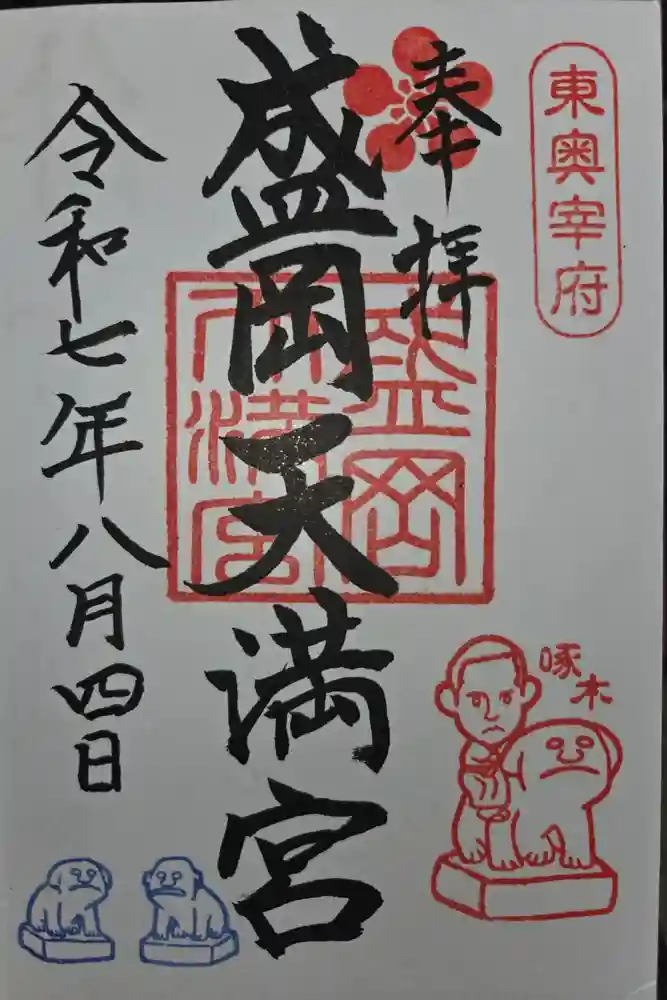 東奥宰府
奉拝
盛岡天満宮
盛岡
天満宮
啄木
令和七年八月四日